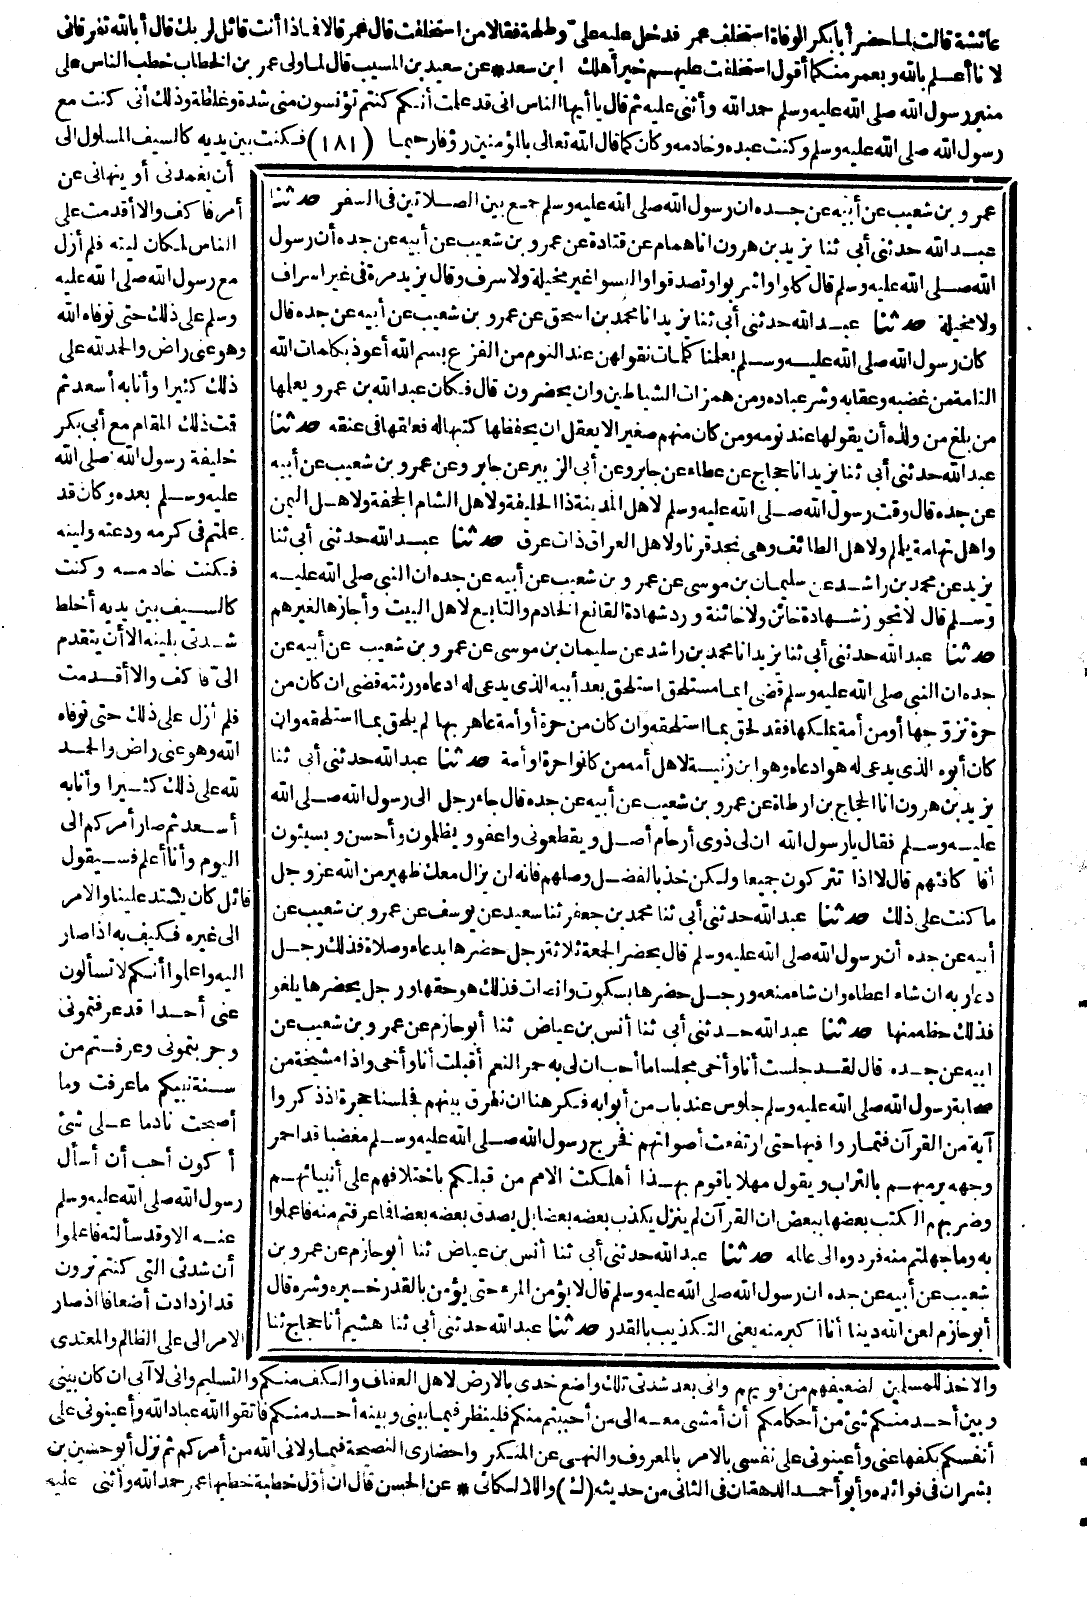 عائشة قالت لما حضر أبا بكر الوفاة استخلف عمر فدخل عليه على وطلحة فقالا من استخلفت قال عمر قالا فماذا أنت قائل لربك قال أبالله تفرقانى
لانا أعلم بالله وبعمر منكما أقول استخلفت عليهم خير أهلك ابن سعد * عن سعيد بن المسيب قال لما ولى عمر بن الخطاب خطب الناس على
منبر رسول الله صلى الله عليه وسلم حمد الله وأثنى عليه ثم قال يا أيها الناس انى قد علمت أنكم كنتم تؤنسون منى شدة وغلظة وذلك أنى كنت مع
رسول الله صلى الله عليه وسلم وكنت عبده وخادمه وكان كما قال الله تعالى بالمؤمنين رؤفا رحيما (١٨١) فكنت بين يديه كالسيف المسلول الى
أن يغمدنى أو ينهانى عن
أمر فا كف والا أقدمت على
الناس لمكان لينه فلم أزل
مع رسول الله صلى الله عليه
وسلم على ذلك حتى توفاه الله
وهو عنى راض والحمد لله على
ذلك كثيرا وأنا به أسعد ثم
قمت ذلك المقام مع أبى بكر
خليفة رسول الله صلى الله
عليه وسلم بعده وكان قد
علمتم فى كرمه ودعته ولينه
فكنت خادمه وكنت
كالسيف بين يديه أخلط
شدتى بلينه الا أن يتقدم
الى فا كف والا أقدمت
فلم أزل على ذلك حتى توفاه
الله وهو عنى راض والحمد
لله على ذلك كثيرا وأنا به
أسعد ثم صار أمركم الى
اليوم وأنا أعلم فسيقول
قائل كان يشتد علينا والامر
الى غيره فكيف به اذا صار
اليه واعلموا أنكم لا تسألون
عنى أحدا قد عرفتمونى
وجربتمونى وعرفتم من
سنة نبيكم ما عرفت وما
أصبحت نادما على شئ
أكون أحب أن أسأل
رسول الله صلى الله عليه وسلم
عنه الا وقد سألته فاعلموا
أن شدتى التى كنتم ترون
قد ازدادت أضعافا اذ صار
الامر الى على الظالم والمعتدى
عمرو بن شعيب عن أبيه عن جده ان رسول الله صلى الله عليه وسلم جمع بين الصلاتين فى السفر حدثنا
عبد الله حدثنى أبى ثنا يزيد بن هرون انا همام عن قتادة عن عمرو بن شعيب عن أبيه عن جده أن رسول
الله صلى الله عليه وسلم قال كلوا واشربوا وتصدقوا والبسوا غير مخيلة ولا سرف وقال يزيد مرة فى غير اسراف
ولا مخيلة حدثنا عبد الله حدثنى أبى ثنا يزيد انا محمد بن اسحق عن عمرو بن شعيب عن أبيه عن جده قال
كان رسول الله صلى الله عليه وسلم يعلمنا كلمات نقولهن عند النوم من الفزع بسم الله أعوذ بكلمات الله
التامة من غضبه وعقابه وشر عباده ومن همزات الشياطين وان يحضرون قال فكان عبد الله بن عمرو يعلمها
من بلغ من ولده أن يقولها عند نومه ومن كان منهم صغيرا لا يعقل ان يحفظها كتبها له فعلقها فى عنقه حدثنا
عبد الله حدثنى أبى ثنا يزيد انا حجاج عن عطاء عن جابر وعن أبى الزبير عن جابر وعن عمرو بن شعيب عن أبيه
عن جده قال وقت رسول الله صلى الله عليه وسلم لاهل المدينة ذا الحليفة ولاهل الشام الجحفة ولاهل اليمن
واهل تهامة يلملم ولاهل الطائف وهى نجد قرنا ولاهل العراق ذات عرق حدثنا عبد الله حدثنى أبى ثنا
يزيد عن محمد بن راشد عن سليمان بن موسى عن عمرو بن شعيب عن أبيه عن جده ان النبى صلى الله عليه
وسلم قال لا تجوز شهادة خائن ولا خائنة ورد شهادة القانع الخادم والتابع لاهل البيت وأجازها لغيرهم
حدثنا عبد الله حدثنى أبى ثنا يزيد انا محمد بن راشد عن سليمان بن موسى عن عمرو بن شعيب عن أبيه عن
جده ان النبى صلى الله عليه وسلم قضى ايما مستلحق استلحق بعد أبيه الذى يدعى له ادعاه ورثته قضى ان كان من
حرة تزوجها أو من أمة يملكها فقد لحق بما استلحقه وان كان من حرة أو أمة عاهر بها لم يلحق بما استلحقه وان
كان أبوه الذى يدعى له هو ادعاه وهو ابن زنية لاهل أمه من كانوا حرة او أمة حدثنا عبد الله حدثنى أبى ثنا
يزيد بن هرون انا الحجاج بن ارطاة عن عمرو بن شعيب عن أبيه عن جده قال جاء رجل الى رسول الله صلى الله
عليه وسلم فقال يا رسول الله ان لى ذوى أرحام أصل ويقطعونى واعفو ويظلمون وأحسن ويسيئون
أفا كافئهم قال لا اذا تتركون جميعا ولكن خذ بالفضل وصلهم فانه لن يزال معك ظهير من الله عز وجل
ما كنت على ذلك حدثنا عبد الله حدثنى أبى ثنا محمد بن جعفر ثنا سعيد عن يوسف عن عمرو بن شعيب عن
أبيه عن جده أن رسول الله صلى الله عليه وسلم قال يحضر الجمعة ثلاثة رجل حضرها بدعاء وصلاة فذلك رجل
دعا ربه ان شاء اعطاه وان شاء منعه ورجل حضرها بسكوت وانصات فذلك هو حقها ورجل يحضرها يلغو
فذلك حظه منها حدثنا عبد الله حدثنى أبى ثنا أنس بن عياض ثنا أبو حازم عن عمرو بن شعيب عن
ابيه عن جده قال لقد جلست أنا وأخى مجلسا ما أحب ان لى به حمر النعم أقبلت أنا وأخى واذا مشيخة من
صحابة رسول الله صلى الله عليه وسلم جلوس عند باب من أبوابه فكرهنا ان نفرق بينهم فجلسنا حجرة اذ ذكروا
آية من القرآن فتماروا فيها حتى ارتفعت أصواتهم فخرج رسول الله صلى الله عليه وسلم مغضبا قد احمر
وجهه يرميهم بالتراب ويقول مهلا يا قوم بهذا أهلكت الامم من قبلكم باختلافهم على أنبيائهم
وضربهم الكتب بعضها ببعض ان القرآن لم ينزل يكذب بعضه بعضا بل يصدق بعضه بعضا فما عرفتم منه فاعملوا
به وما جهلتم منه فردوه الى عالمه حدثنا عبد الله حدثنى أبى ثنا أنس بن عياض ثنا أبو حازم عن عمرو بن
شعيب عن أبيه عن جده ان رسول الله صلى الله عليه وسلم قال لا يؤمن المرء حتى يؤمن بالقدر خيره وشره قال
أبو حازم لعن الله دينا أنا أكبر منه يعنى التكذيب بالقدر حدثنا عبد الله حدثنى أبى ثنا هشيم أنا حجاج ثنا
والاخذ للمسلمين لضعيفهم من قويهم وانى بعد شدتى تلك واضع خدى بالارض لاهل العفاف والكف منكم والتسليم وانى لا آبى ان كان بينى
وبين أحد منكم شئ من أحكامكم أن أمشى معه الى من أحببتم منكم فلينظر فيما بينى وبينه أحد منكم فاتقوا الله عباد الله وأعينونى على
أنفسكم بكفها عنى وأعينونى على نفسى بالامر بالمعروف والنهى عن المنكر واحضارى النصيحة فيما ولانى الله من أمركم ثم نزل أبو حسين بن
بشران فى فوائده وأبو أحمد الدهقان فى الثانى من حديثه (ك) واللالكائى * عن الحسن قال ان أول خطبة خطبها عمر حمد الله وأثنى عليه